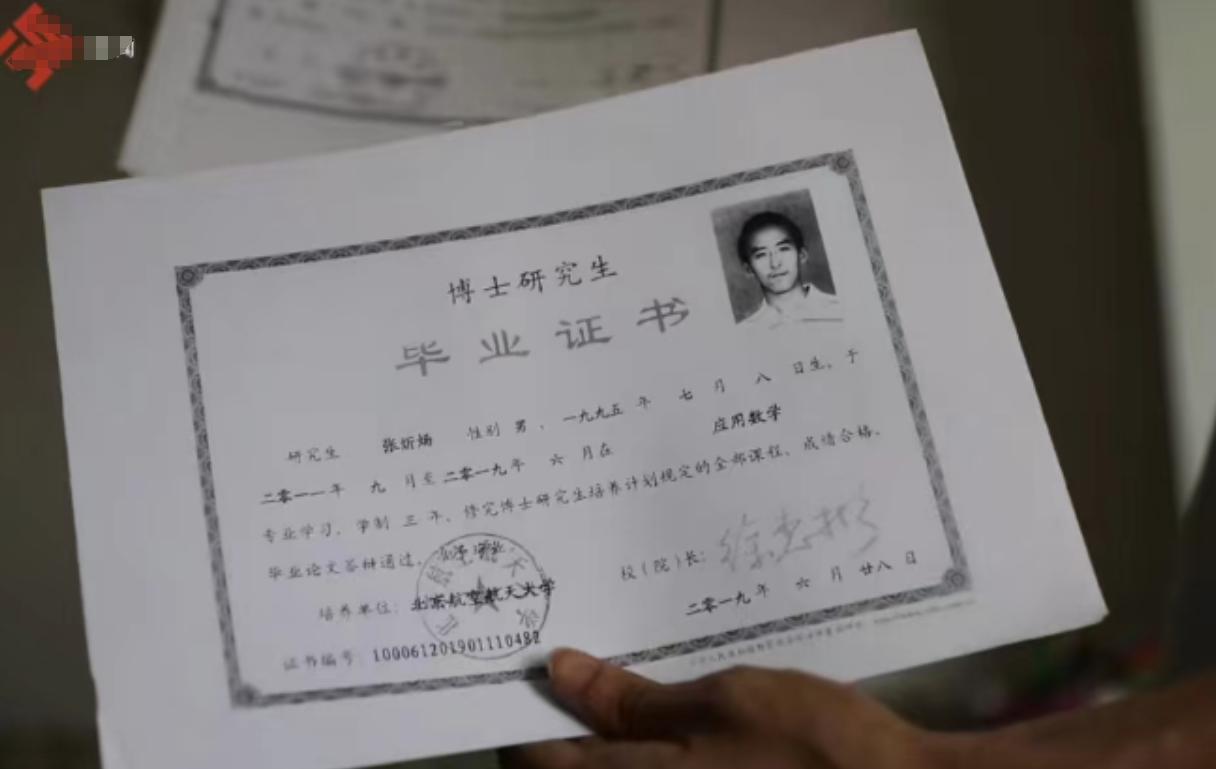 博士研究生
毕业证书
研究生 张炘炀 性别 男，一九九五 年 七 月 八 日生，于
二零一一年 九 月至二零一九年 六 月在 应用数学
专业学习，学制 三 年，修完博士研究生培养计划规定的全部课程，成绩合格，
毕业论文答辩通过，
培养单位：北京航空航天大学
校（院）长：徐惠彬
证书编号：100061201901110482
二零一九年 六 月 廿八 日